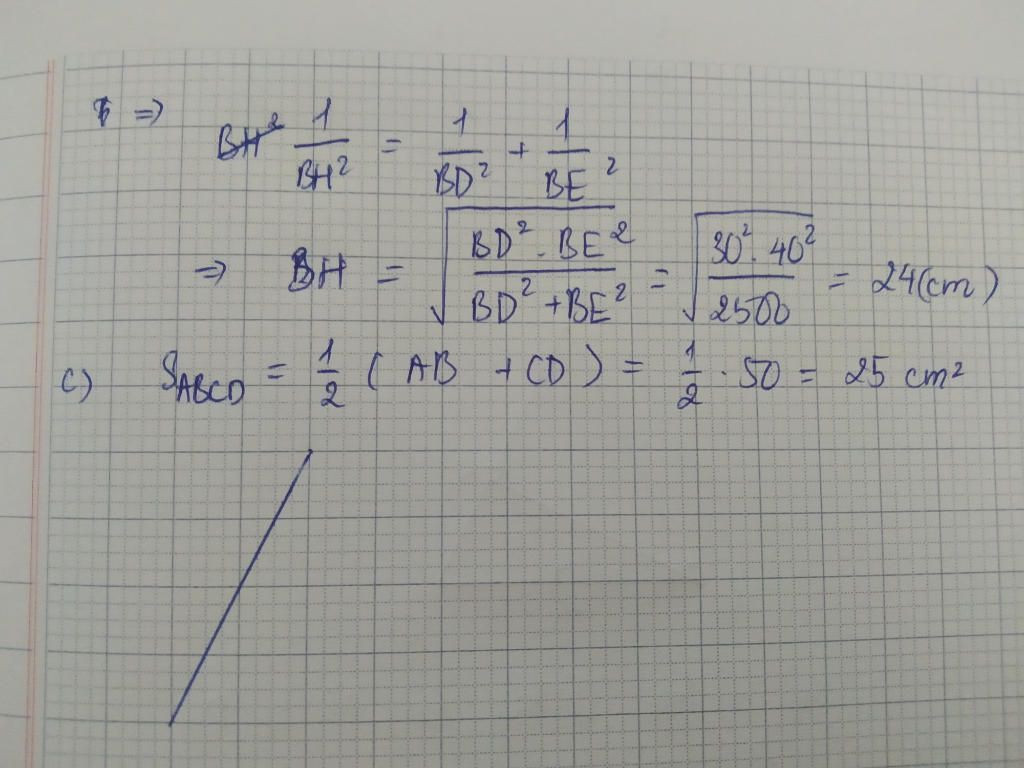 ⇒ 1/BH² = 1/BD² + 1/BE²
⇒ BH = √(BD² . BE² / BD² + BE²) = √(30² . 40² / 2500) = 24 (cm)
c) S_ABCD = 1/2 ( AB + CD ) = 1/2 . 50 = 25 cm²